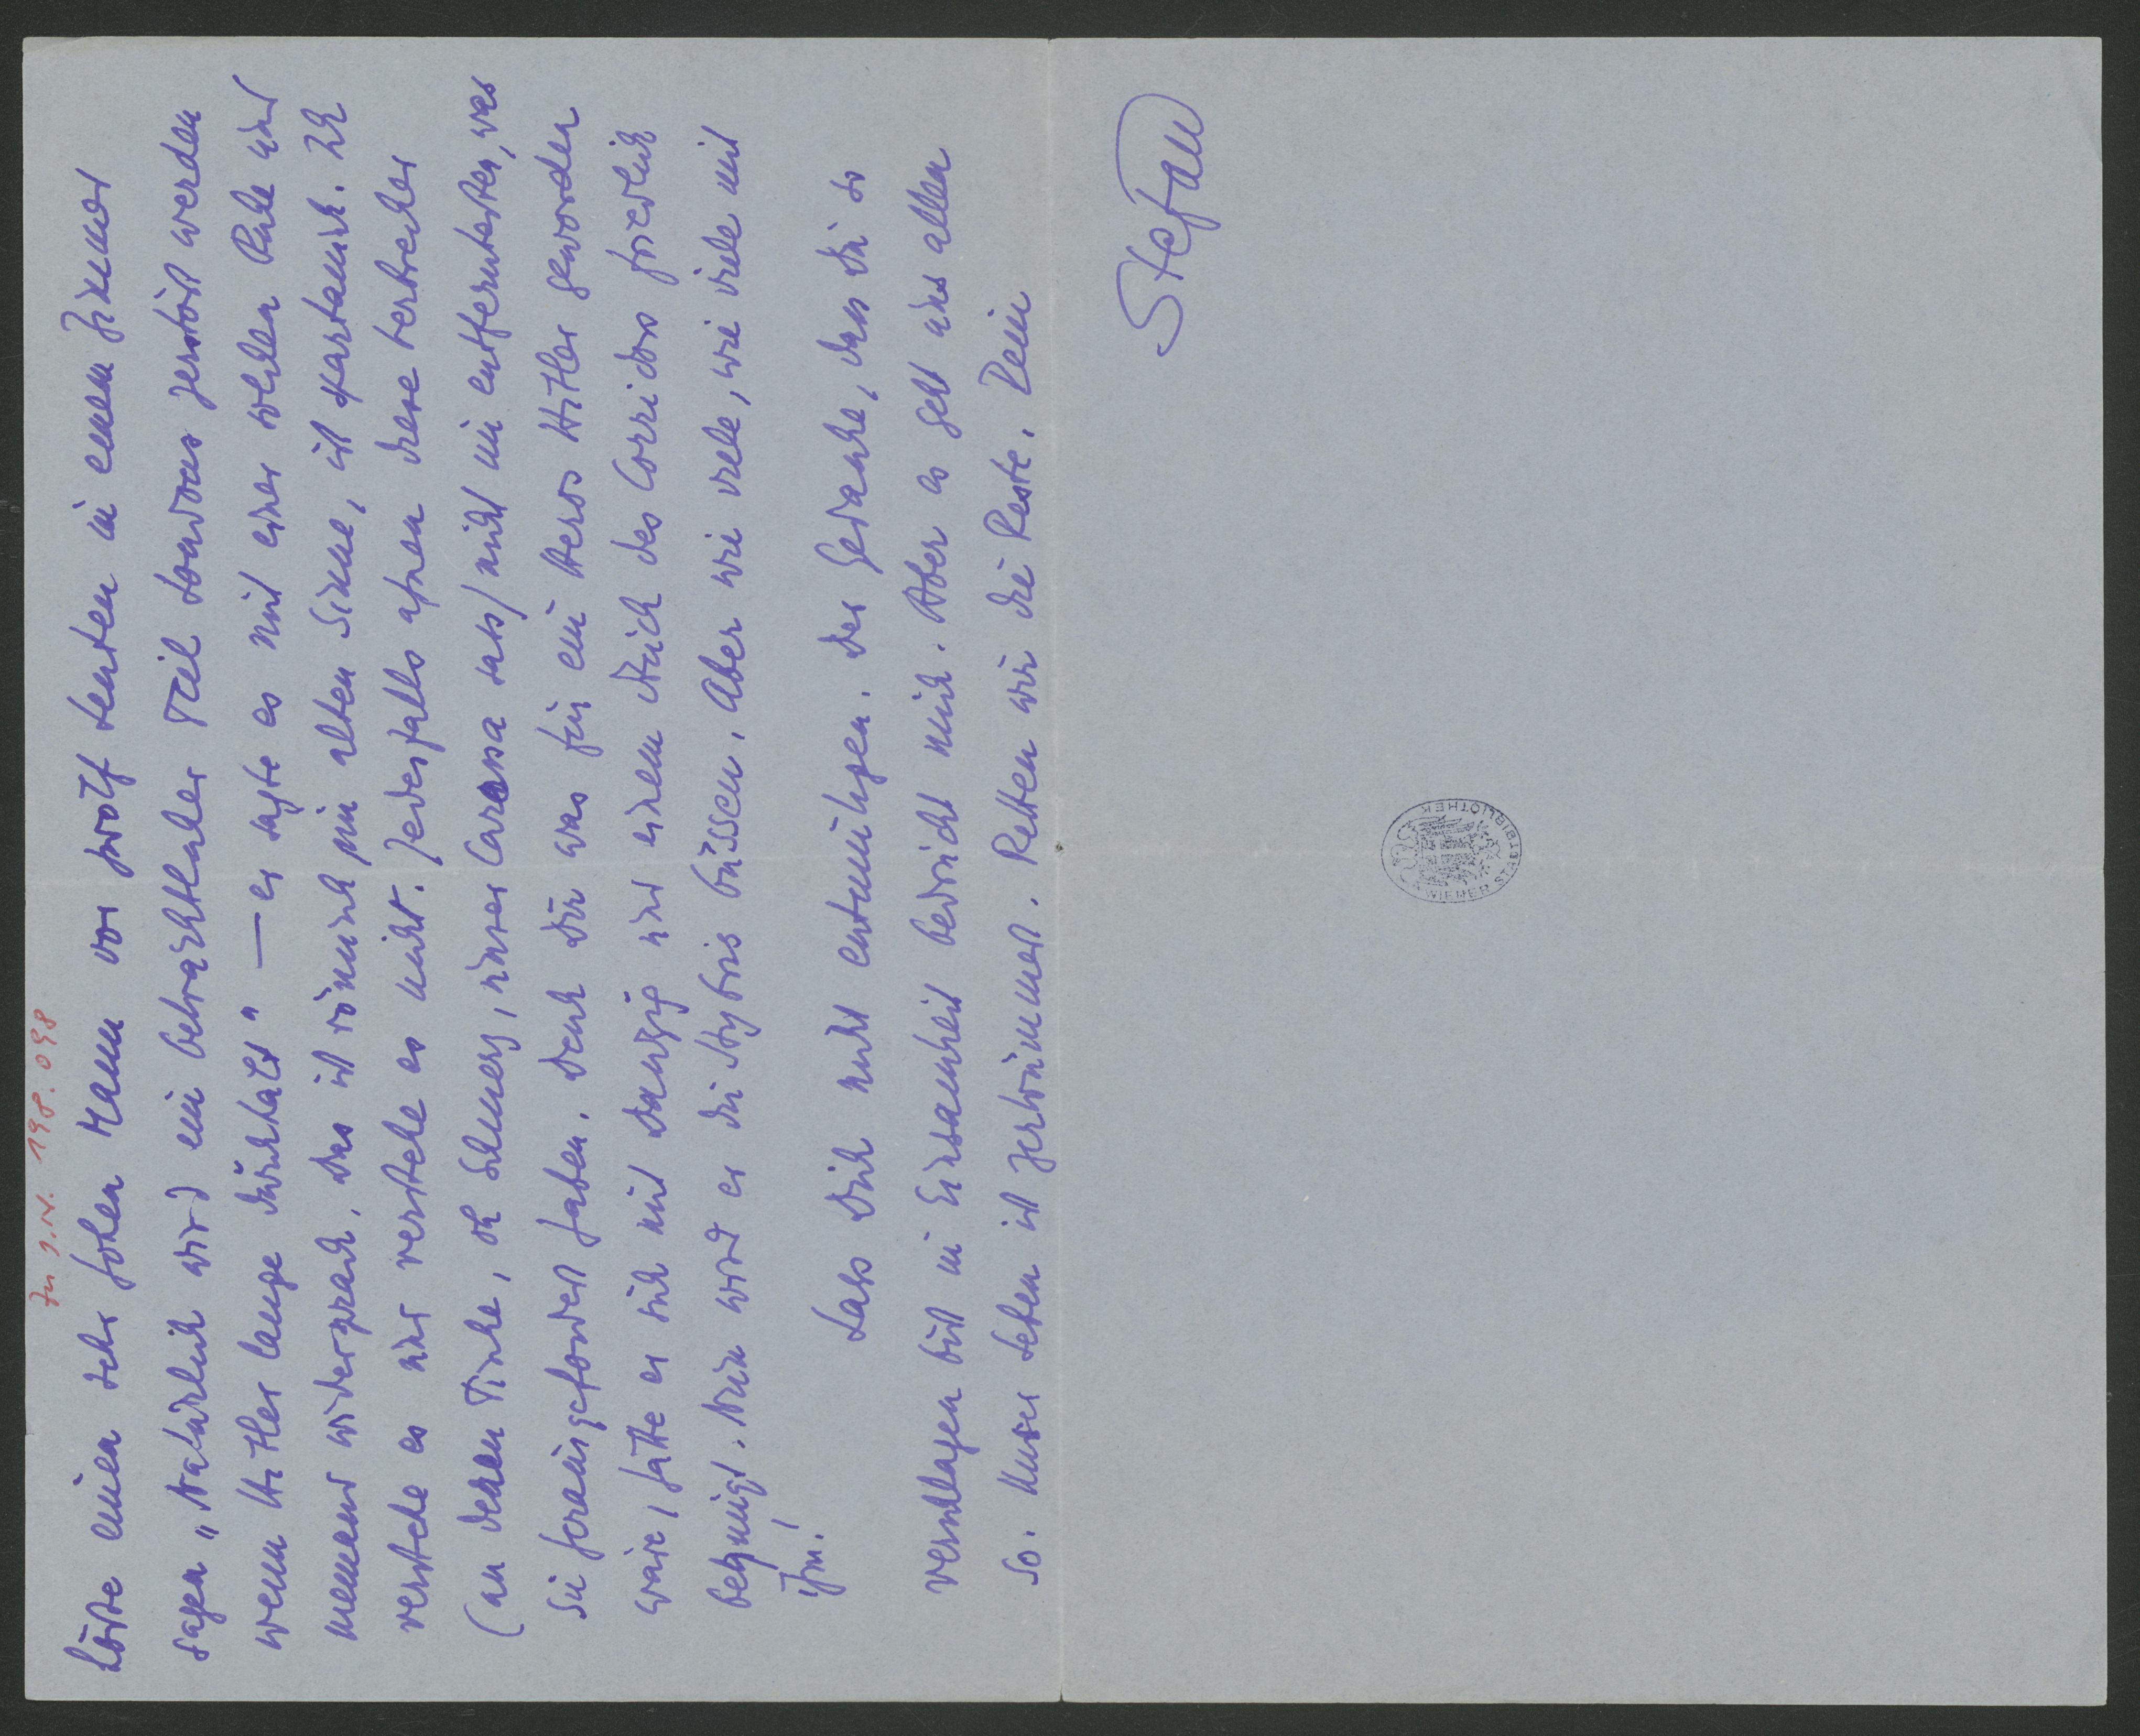 Zu I.N. 198.098
hörte einen sehr hohen Mann vor zwölf Leuten in einem Zimmer
sagen „Natürlich wird ein beträchtlicher Teil Londons zerstört werden
wenn Hitler lange durchhält" — er sagte es mit einer solchen Ruhe und
niemand widersprach. Das ist römisch im alten Sinne, ist spartanisch. Ich
verstehe es und verstehe es nicht. Jedesfalls ahnen diese Verbrecher
(an deren Tische, oh Schmerz, unser Carossa sass) nicht im entferntesten, was
sie herausgefordert haben. Denk Dir was für ein Heros Hitler geworden
wäre, hätte er sich mit Danzig und einem Stück des Corridors friedlich
begnügt. Nun wird er die Hybris büssen. Aber wie viele, wie viele mit
ihm!
Lass Dich nicht entmutigen. Der Gedanke, dass Du so
verschlagen bist in Einsamkeit bedrückt mich. Aber es geht uns allen
so. Unser Leben ist zertrümmert. Retten wir die Reste. Dein
Stefan
WIENER STADTBIBLIOTHEK